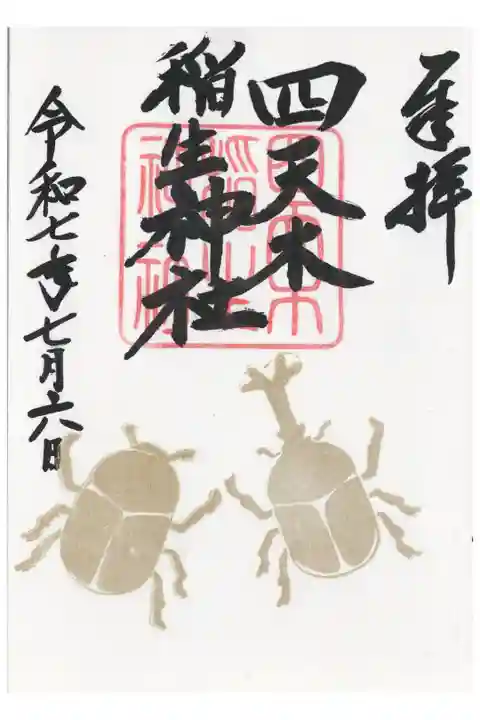 奉拝
四天木
稲生神社
令和七年七月六日